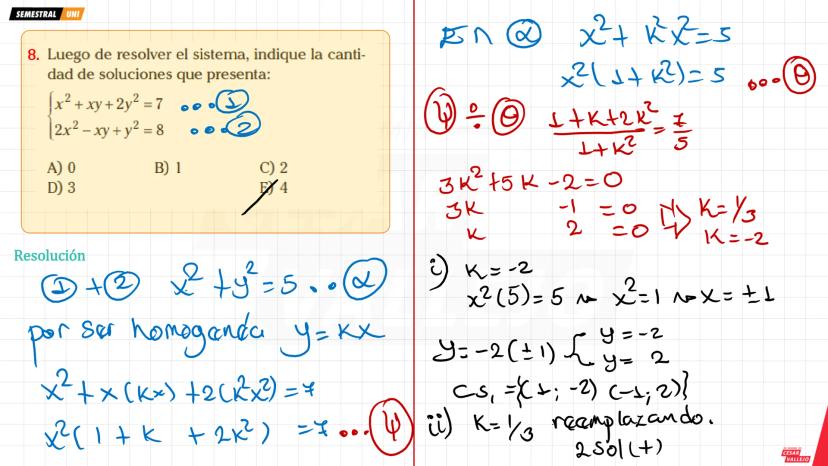 SEMESTRAL UNI
8. Luego de resolver el sistema, indique la canti-
dad de soluciones que presenta:
x² + xy + 2y² = 7 ...①
2x² − xy + y² = 8 ...②
A) 0 B) 1 C) 2
D) 3 E) 4
Resolución
① + ② x² + y² = 5 ..α
por ser homoganéa y = kx
x² + x(kx) + 2(k²x²) = 7
x²(1 + k + 2k²) = 7 ...ψ
En α x² + k²x² = 5
x²(1 + k²) = 5 ...θ
ψ ÷ θ (1 + k + 2k²)/(1 + k²) = 7/5
3k² + 5k − 2 = 0
3k −1 = 0 ⇒ k = 1/3
k 2 = 0 k = −2
i) k = −2
x²(5) = 5 → x² = 1 → x = ±1
y = −2(±1) { y = −2
y = 2
CS₁ = {(1; −2) (−1; 2)}
ii) k = 1/3 reemplazando.
2 sol (+)
ACADEMIA
CESAR
VALLEJO